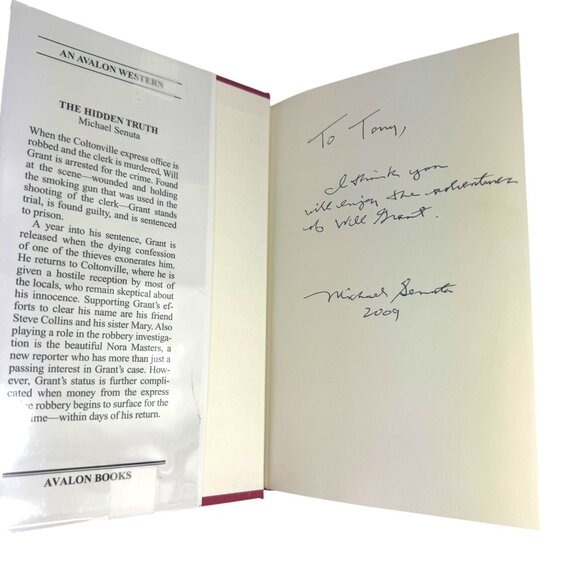 AN AVALON WESTERN
THE HIDDEN TRUTH
Michael Senuta
When the Coltonville express office is
robbed and the clerk is murdered, Will
Grant is arrested for the crime. Found
at the scene—wounded and holding
the smoking gun that was used in the
shooting of the clerk—Grant stands
trial, is found guilty, and is sentenced
to prison.
A year into his sentence, Grant is
released when the dying confession
of one of the thieves exonerates him.
He returns to Coltonville, where he is
given a hostile reception by most of
the locals, who remain skeptical about
his innocence. Supporting Grant's ef-
forts to clear his name are his friend
Steve Collins and his sister Mary. Also
playing a role in the robbery investiga-
tion is the beautiful Nora Masters, a
new reporter who has more than just a
passing interest in Grant's case. How-
ever, Grant's status is further compli-
cated when money from the express
robbery begins to surface for the
—within days of his return.
AVALON BOOKS
To Tony,
I think you
will enjoy the adventures
of Will Grant.
Michael Senuta
2009